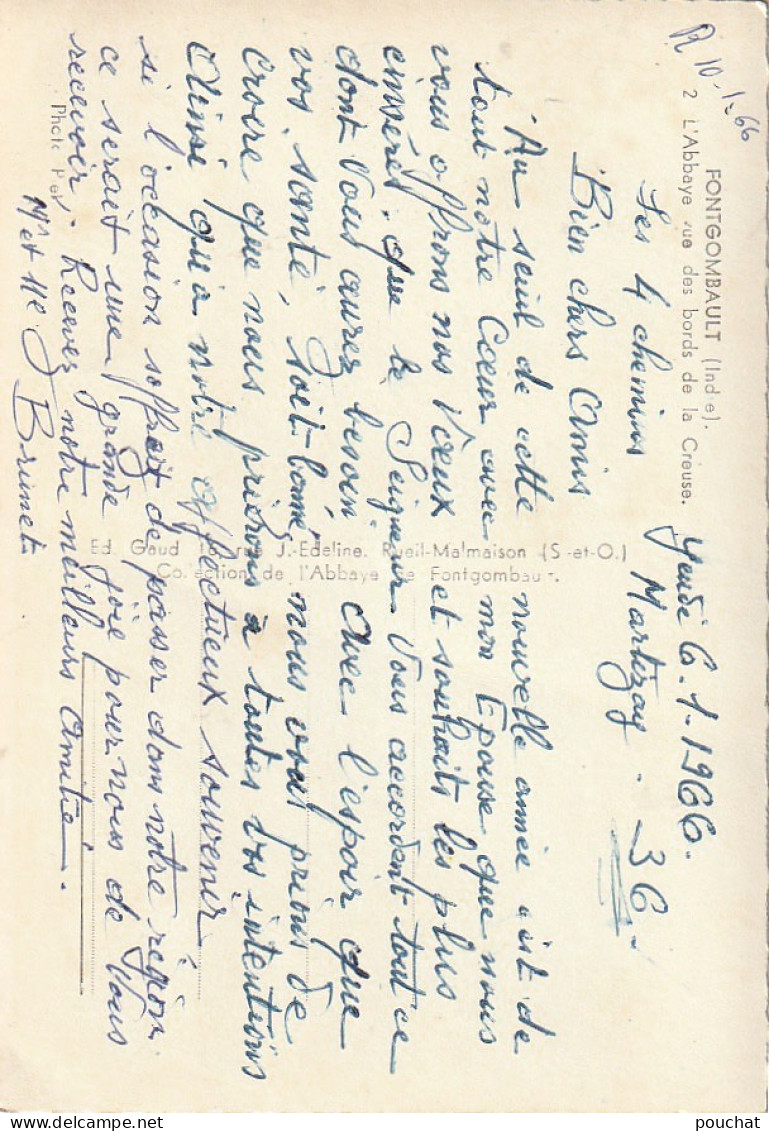 R 10-1-66
FONTGOMBAULT (Indre).
2 L'Abbaye vue des bords de la Creuse.
Jeudi 6.1-1966.
Les 4 chemins Martizay. 36
Bien chers Amis
Au seuil de cette nouvelle année c'est de
tout notre Cœur avec mon Epouse que nous
vous offrons nos Vœux et souhaits les plus
sincères. que le Seigneur Vous accordent tout ce
dont Vous aurez besoin. Avec l'espoir que
vos santé, soit bonne, nous vous prions de
croire que nous prierons à toutes vos intentions
Ainsi qu'a notre affectueux souvenir
si l'occasion soffrait de passer dans notre région.
ce serait une grande joie pour nous de Vous
recevoir. Recevez notre meilleurs Amitié.
Mr et Me J Brunet
Photo
Ed. Gaud rue J.-Edeline. Rueil-Malmaison (S-et-O.)
Collection de l'Abbaye de Fontgombault.
pouchat